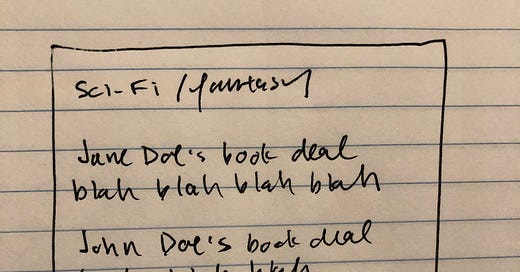 Sci-Fi / fantasy
Jane Doe's book deal
blah blah blah blah
John Doe's book deal